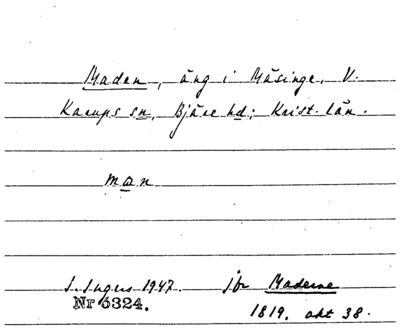 Maden, äng i Mäsinge, V.
Karups sn, Bjäre hd; Krist. län.
man
S. Ingers 1947. jfr Maderne
Nr 6324. 1819. akt 38.